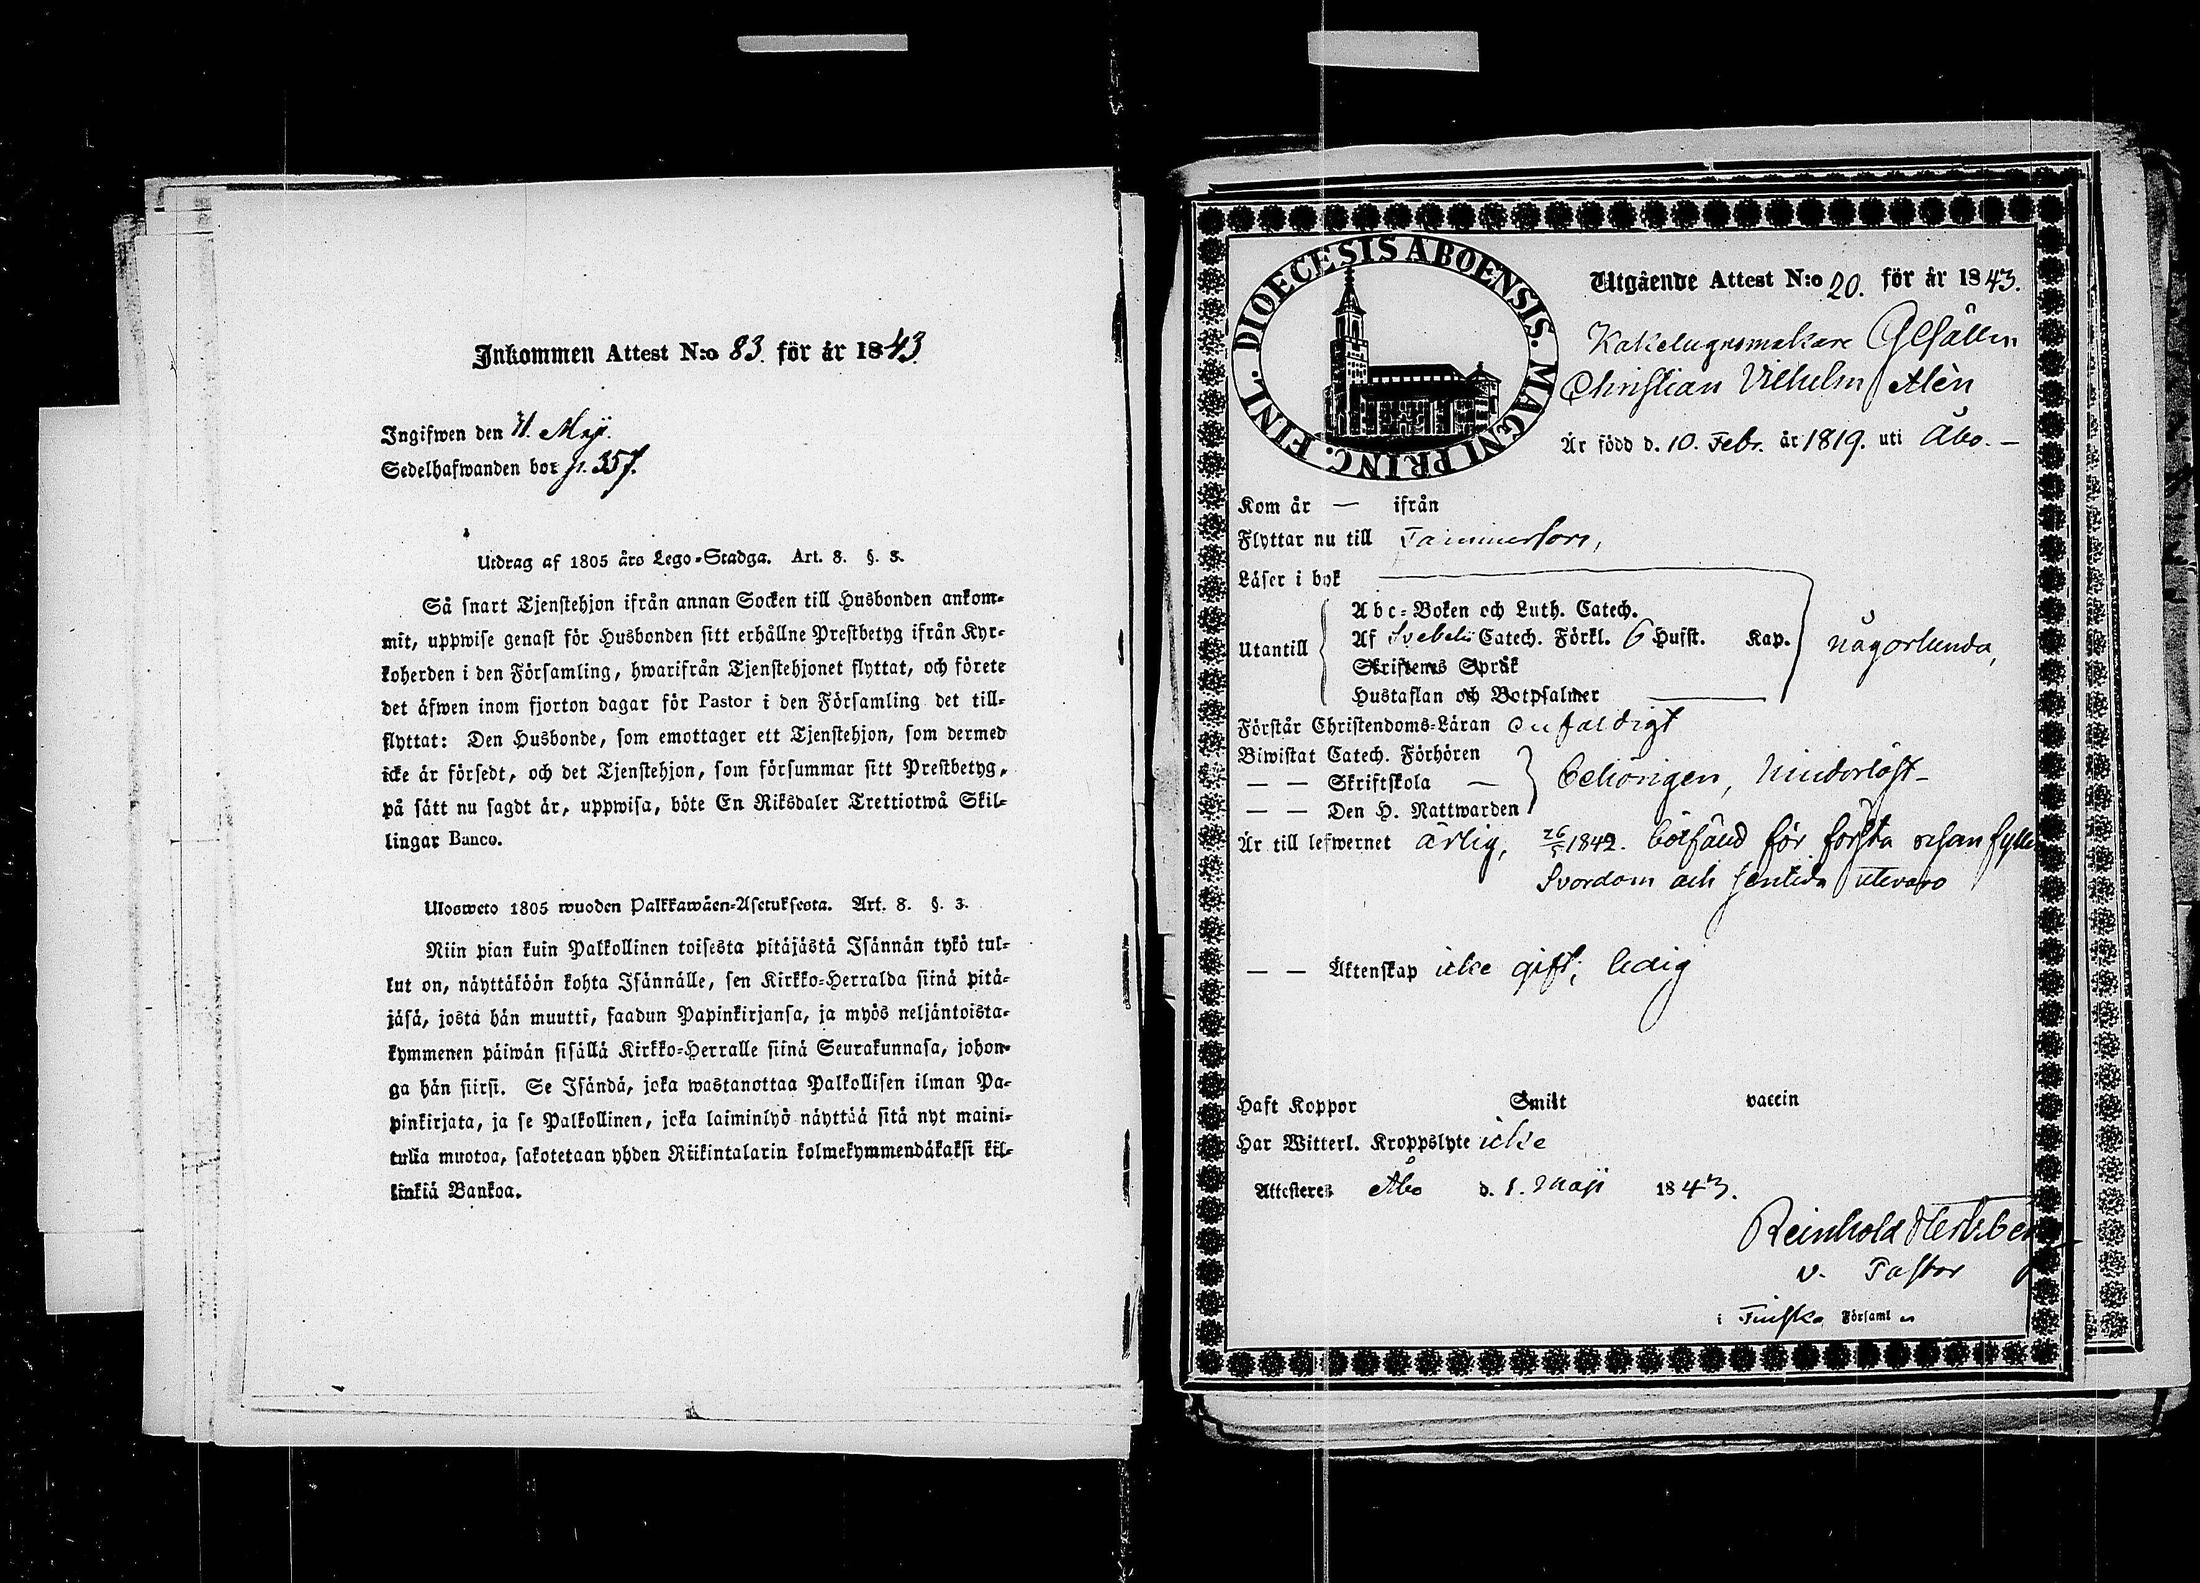 Inkommen Attest N:o 83. för år 1843.
Ingifwen den 11. Maji.
Sedelhafwanden bor p. 357.
Utdrag af 1805 års Lego-Stadga. Art. 8. §. 3.
Så snart Tjenstehjon ifrån annan Socken till Husbonden ankom-
mit, uppwise genast för Husbonden sitt erhållne Prestbetyg ifrån Kyr-
koherden i den Församling, hwarifrån Tjenstehjonet flyttat, och förete
det äfwen inom fjorton dagar för Pastor i den Församling det till-
flyttat: Den Husbonde, som emottager ett Tjenstehjon, som dermed
icke är försedt, och det Tjenstehjon, som försummar sitt Prestbetyg,
på sätt nu sagdt är, uppwisa, böte En Riksdaler Trettiotwå Skil-
lingar Banco.
Ulosweto 1805 wuoden Palkkawäen-Asetuksesta. Art. 8. §. 3.
Niin pian kuin Palkollinen toisesta pitäjästä Isännän tykö tul-
lut on, näyttäköön kohta Isännälle, sen Kirkko-Herralda siinä pitä-
jäsä, josta hän muutti, saadun Papinkirjansa, ja myös neljäntoista-
kymmenen päiwän sisällä Kirkko-Herralle siinä Seurakunnasa, johon-
ga hän siirsi. Se Isändä, joka wastanottaa Palkollisen ilman Pa-
pinkirjata, ja se Palkollinen, joka laiminlyö näyttää sitä nyt maini-
tulla muotoa, sakotetaan yhden Riikintalarin kolmekymmendäkaksi kil-
linkiä Bankoa.
DIOECESIS ABOENSIS. MAGNI PRINC. FINL.
Utgående Attest N:o 20. för år 1843.
Kakelugnsmakare Gesällen
Christian Vilhelm Alén
Är född d. 10. Febr. år 1819. uti Åbo. —
Kom år — ifrån
Flyttar nu till Tammerfors,
Läser i bok
Abc-Boken och Luth. Catech.
Utantill Af Svebeli Catech. Förkl. 6 Hufst. Kap. någorlunda,
Skriftens Språk
Hustaflan och Botpsalmer
Förstår Christendoms-Läran enfaldigt
Biwistat Catech. Förhören
— — Skriftskola — behörigen, hinderlöst
— — Den H. Nattwarden
Är till lefwernet ärlig, 26/5 1842. botfäld för första resan fylleri
Svordom och sentida utevaro
— — Äktenskap icke gift, ledig
Haft Koppor Smitt vaccin
Har Witterl. Kroppslyte icke
Attesteres Åbo d. 1. Maji 1843.
Reinhold Hertzberg
v. Pastor
i Finska Församl en